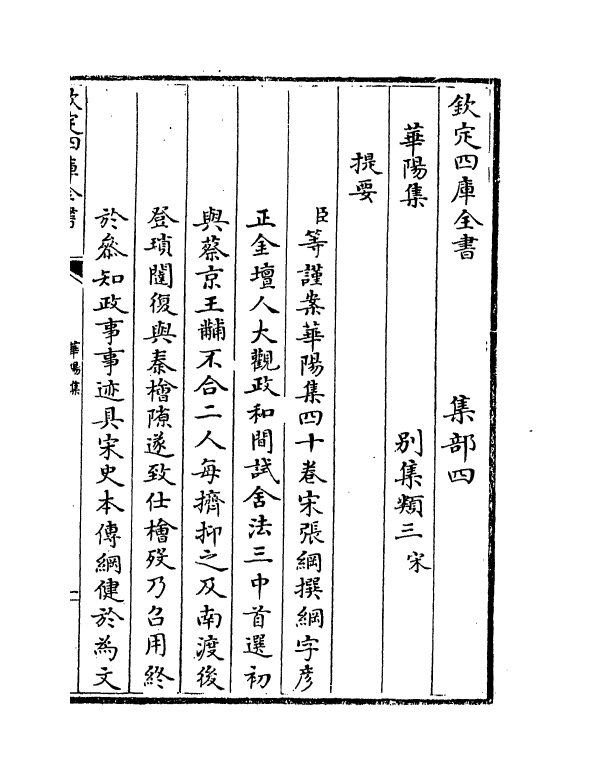 欽定四庫全書
集部四
華陽集
別集類三宋
提要
臣等謹案華陽集四十卷宋張綱撰綱字彦
正金壇人大觀政和間試舍法三中首選初
與蔡京王黼不合二人每擠抑之及南渡後
登瑣闥復與秦檜隙遂致仕檜殁乃召用終
於叅知政事事迹具宋史本傳綱健於為文
欽定四庫全書
華陽集
一